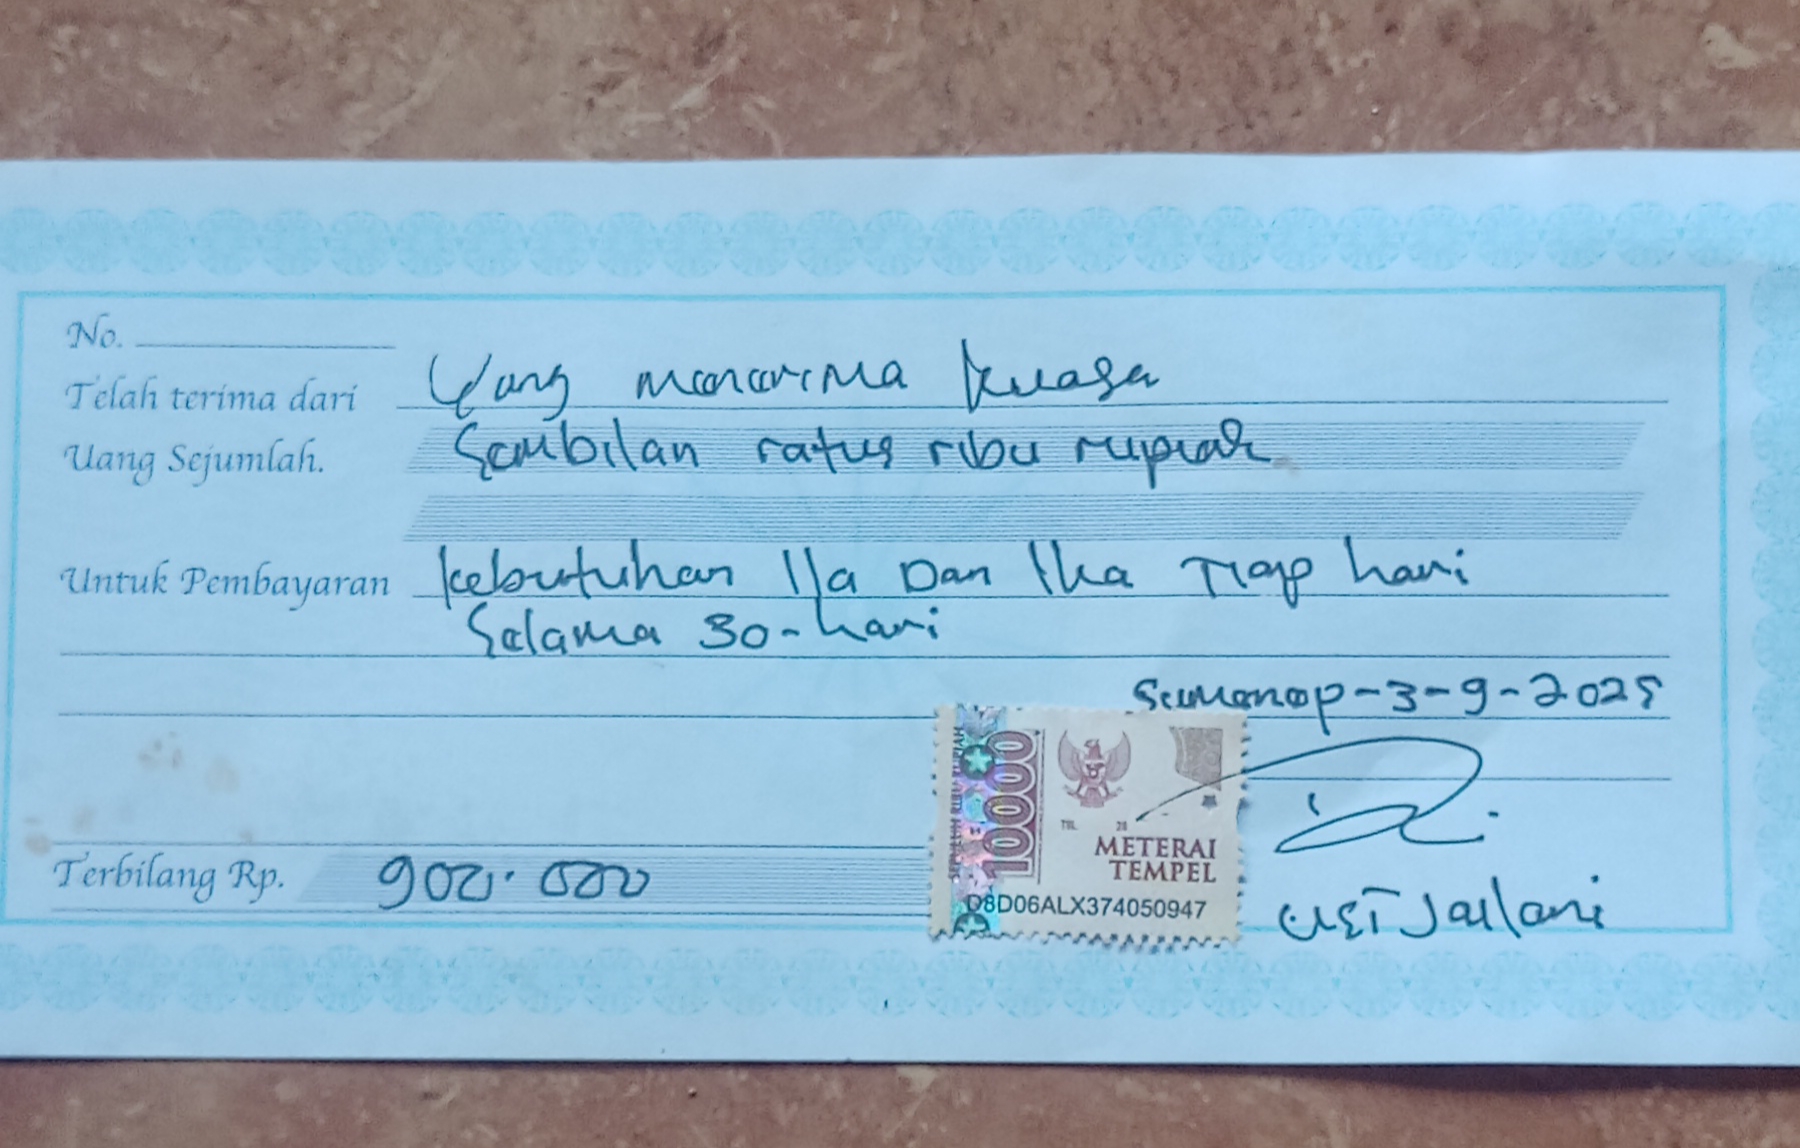 No.
Telah terima dari Yang menerima kuasa
Uang Sejumlah. Sembilan ratus ribu rupiah
Untuk Pembayaran kebutuhan Ila Dan Ika Tiap hari
Selama 30-hari
Sumenep-3-9-2025
10000
TGL. 20
METERAI
TEMPEL
D8D06ALX374050947
Terbilang Rp. 900.000
UST Jailani